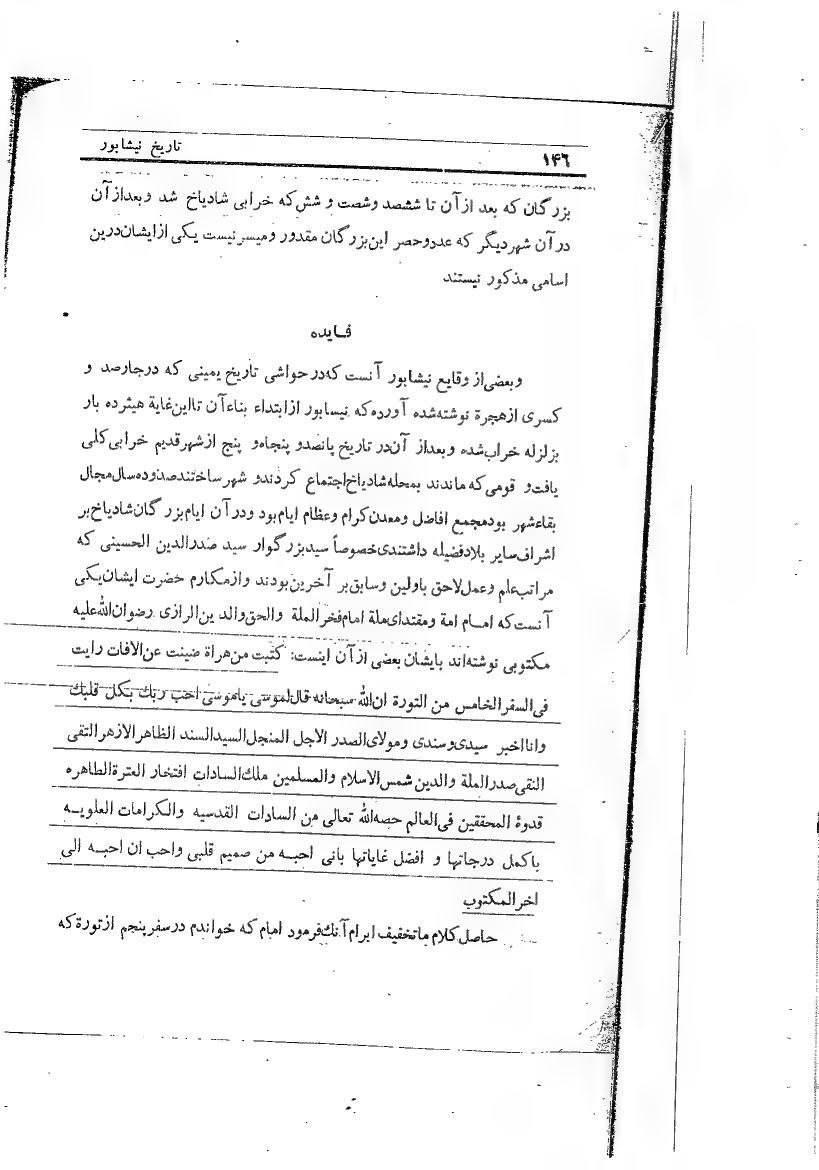 ۱۴۶
تاریخ نیشابور
بزرگان که بعد از آن تا ششصد وشصت و شش که خرابی شادیاخ شد وبعداز آن
در آن شهر دیگر که عددو حصر این بزرگان مقدور ومیسر نیست یکی ازایشان درین
اسامی مذکور نیستند
فـایده
وبعضی از وقایع نیشابور آنست که در حواشی تاریخ یمینی که در چارصد و
کسری از هجرة نوشته شده آورده که نیسابور از ابتداء بناء آن تا این غایة هیثرده بار
بزلزله خراب شده وبعداز آن در تاریخ پانصدو پنجاه و پنج از شهر قدیم خرابی کلی
یافت و قومی که ماندند بمحله شادیاخ اجتماع کردندو شهر ساختند صدوده سال مجال
بقاء شهر بود مجمع افاضل ومعدن کرام وعظام ایام بود ودر آن ایام بزرگان شادیاخ بر
اشراف سایر بلاد فضیله داشتندی خصوصاً سید بزرگوار سید صدرالدین الحسینی که
مراتب علم وعمل لاحق باولین وسابق بر آخرین بودند واز مکارم حضرت ایشان یکی
آنست که امـام امة ومقتدای ملة امام فخر الملة والحق والدین الرازی رضوان الله علیه
مکتوبی نوشته اند بایشان بعضی از آن اینست: کتبت من هراة ضینت عن الافات رایت
فی السفر الخامس من التورة ان الله سبحانه قال لموسی یاموسی احب ربك بکل قلبك
وانا اخبر سیدی وسندی ومولای الصدر الاجل المنجل السید السند الظاهر الازهر التقی
النقی صدر الملة والدین شمس الاسلام والمسلمین ملك السادات افتخار العترة الطاهره
قدوة المحققین فی العالم حصه الله تعالی من السادات القدسیه والکرامات العلویـه
باکمل درجاتها و افضل غایاتها بانی احبـه من صمیم قلبی واحب ان احبـه الی
اخر المکتوب
حاصل کلام ما تخفیف ابرام آنك فرمود امام که خواندم در سفر پنجم از تورة که